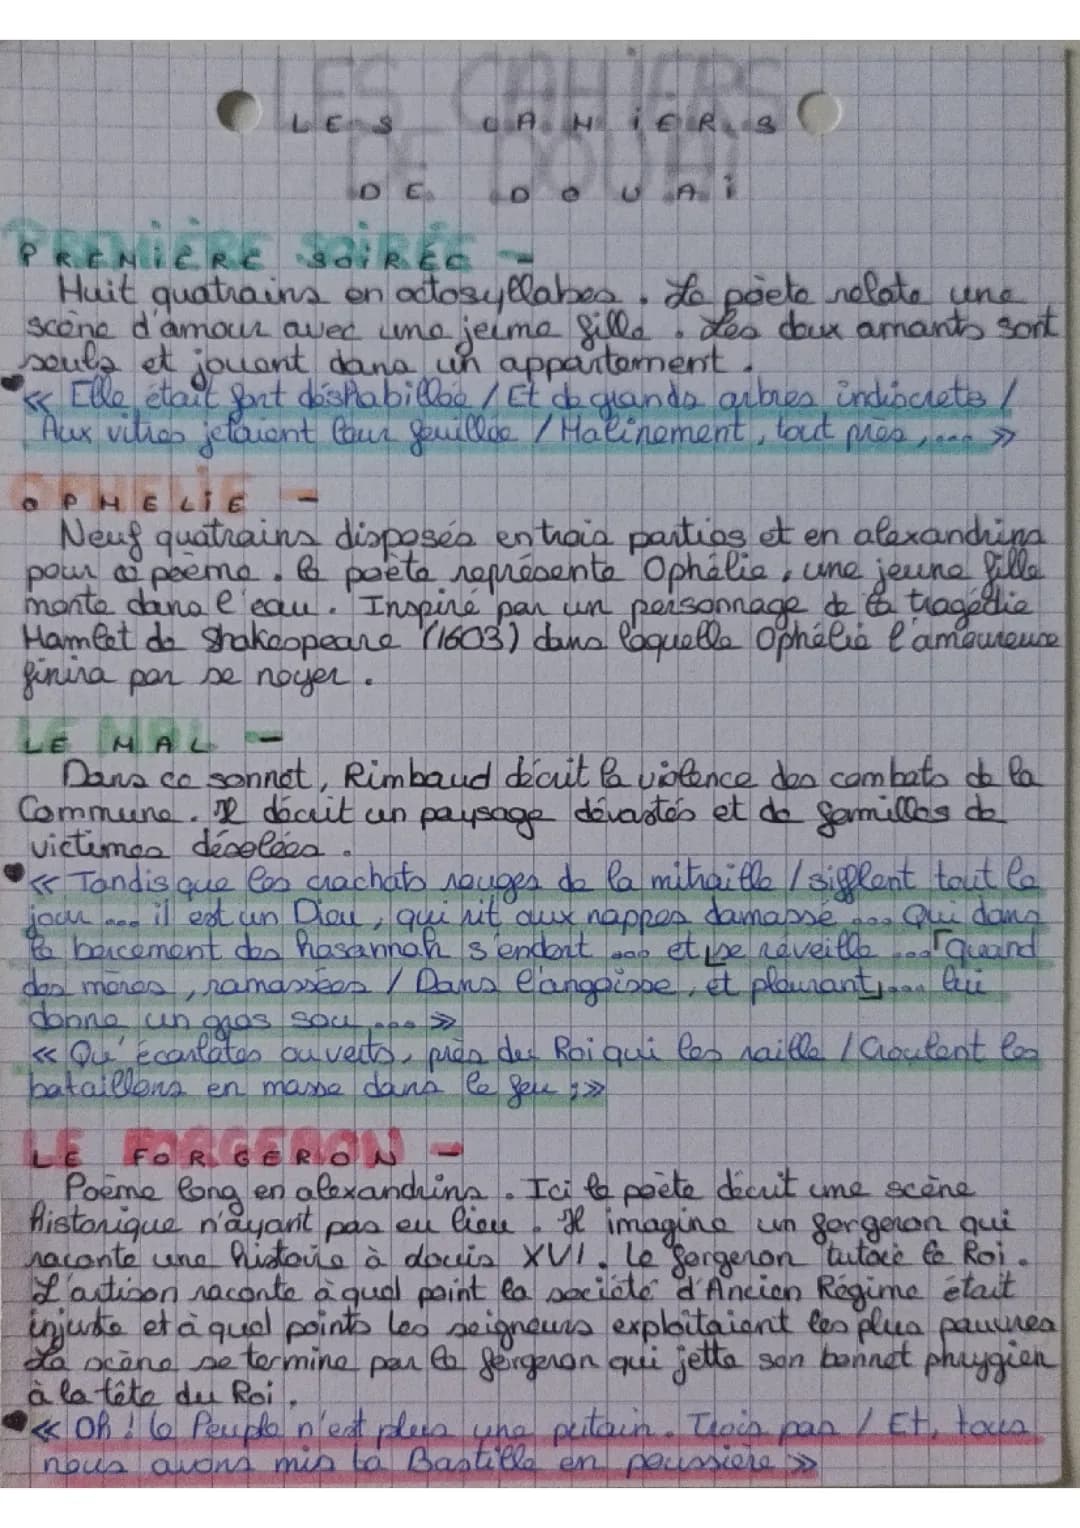 LES CAHIERS
DE DOUAI
PREMIÈRE SOIRÉE -
Huit quatrains en octosyllabes. Le poète relate une
scène d'amour avec une jeune fille. Les deux amants sont
seuls et jouent dans un appartement.
« Elle était fort déshabillée / Et de grands arbres indiscrets /
Aux vitres jetaient leur feuillée / Malinement, tout près,... »
OPHELIE -
Neuf quatrains disposés en trois parties et en alexandrins
pour ce poème. Le poète représente Ophélie, une jeune fille
morte dans l'eau. Inspiré par un personnage de la tragédie
Hamlet de Shakespeare (1603) dans laquelle Ophélie l'amoureuse
finira par se noyer.
LE MAL -
Dans ce sonnet, Rimbaud décrit la violence des combats de la
Commune. Il décrit un paysage dévastés et de familles de
victimes désolées.
« Tandis que les crachats rouges de la mitraille / sifflent tout le
jour ... il est un Dieu, qui rit aux nappes damassé ... Qui dans
le bercement des hosannah s'endort ... et se réveille ... quand
des mères, ramassées / Dans l'angoisse, et pleurant,... lui
donne un gros sou ... »
« Qu'écarlates ou verts, près du Roi qui les raille / Croulent les
bataillons en masse dans le feu ; »
LE FORGERON -
Poème long en alexandrins. Ici le poète décrit une scène
historique n'ayant pas eu lieu. Il imagine un forgeron qui
raconte une histoire à Louis XVI. Le forgeron tutoie le Roi.
L'artison raconte à quel point la société d'Ancien Régime était
injuste et à quel points les seigneurs exploitaient les plus pauvres
La scène se termine par le forgeron qui jette son bonnet phrygien
à la tête du Roi.
« Oh ! le Peuple n'est plus une putain. Trois pas / Et, tous
nous avons mis ta Bastille en poussière »